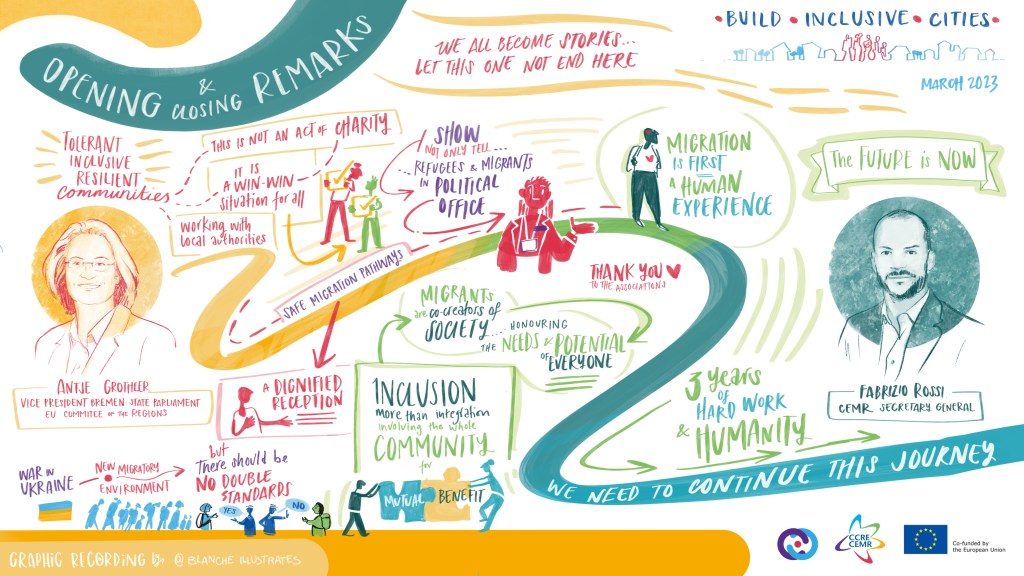 OPENING & CLOSING REMARKS
WE ALL BECOME STORIES...
LET THIS ONE NOT END HERE
• BUILD • INCLUSIVE • CITIES •
MARCH 2023
TOLERANT
INCLUSIVE
RESILIENT
communities
THIS IS NOT AN ACT OF CHARITY
IT IS
A WIN-WIN
situation for all
working with
local authorities
SHOW
NOT ONLY TELL...
REFUGEES & MIGRANTS
IN POLITICAL
OFFICE
MIGRATION
IS FIRST
A HUMAN
EXPERIENCE
The FUTURE is NOW
SAFE MIGRATION PATHWAYS
THANK YOU
TO THE ASSOCIATIONS
MIGRANTS
are co-creators of
SOCIETY...
HONOURING
THE NEEDS & POTENTIAL
OF EVERYONE
ANTJE GROTHEER
VICE PRESIDENT BREMEN STATE PARLIAMENT
EU COMMITEE OF THE REGIONS
A DIGNIFIED
RECEPTION
INCLUSION
more than integration
involving the whole
COMMUNITY
for
MUTUAL
BENEFIT
3 years
OF
HARD WORK
& HUMANITY
FABRIZIO ROSSI
CEMR SECRETARY GENERAL
WAR IN
UKRAINE
NEW MIGRATORY
ENVIRONMENT
but
There should be
NO DOUBLE
STANDARDS
YES
NO
WE NEED TO CONTINUE THIS JOURNEY
GRAPHIC RECORDING By: @BLANCHE ILLUSTRATES
CCRE
CEMR
Co-funded by
the European Union